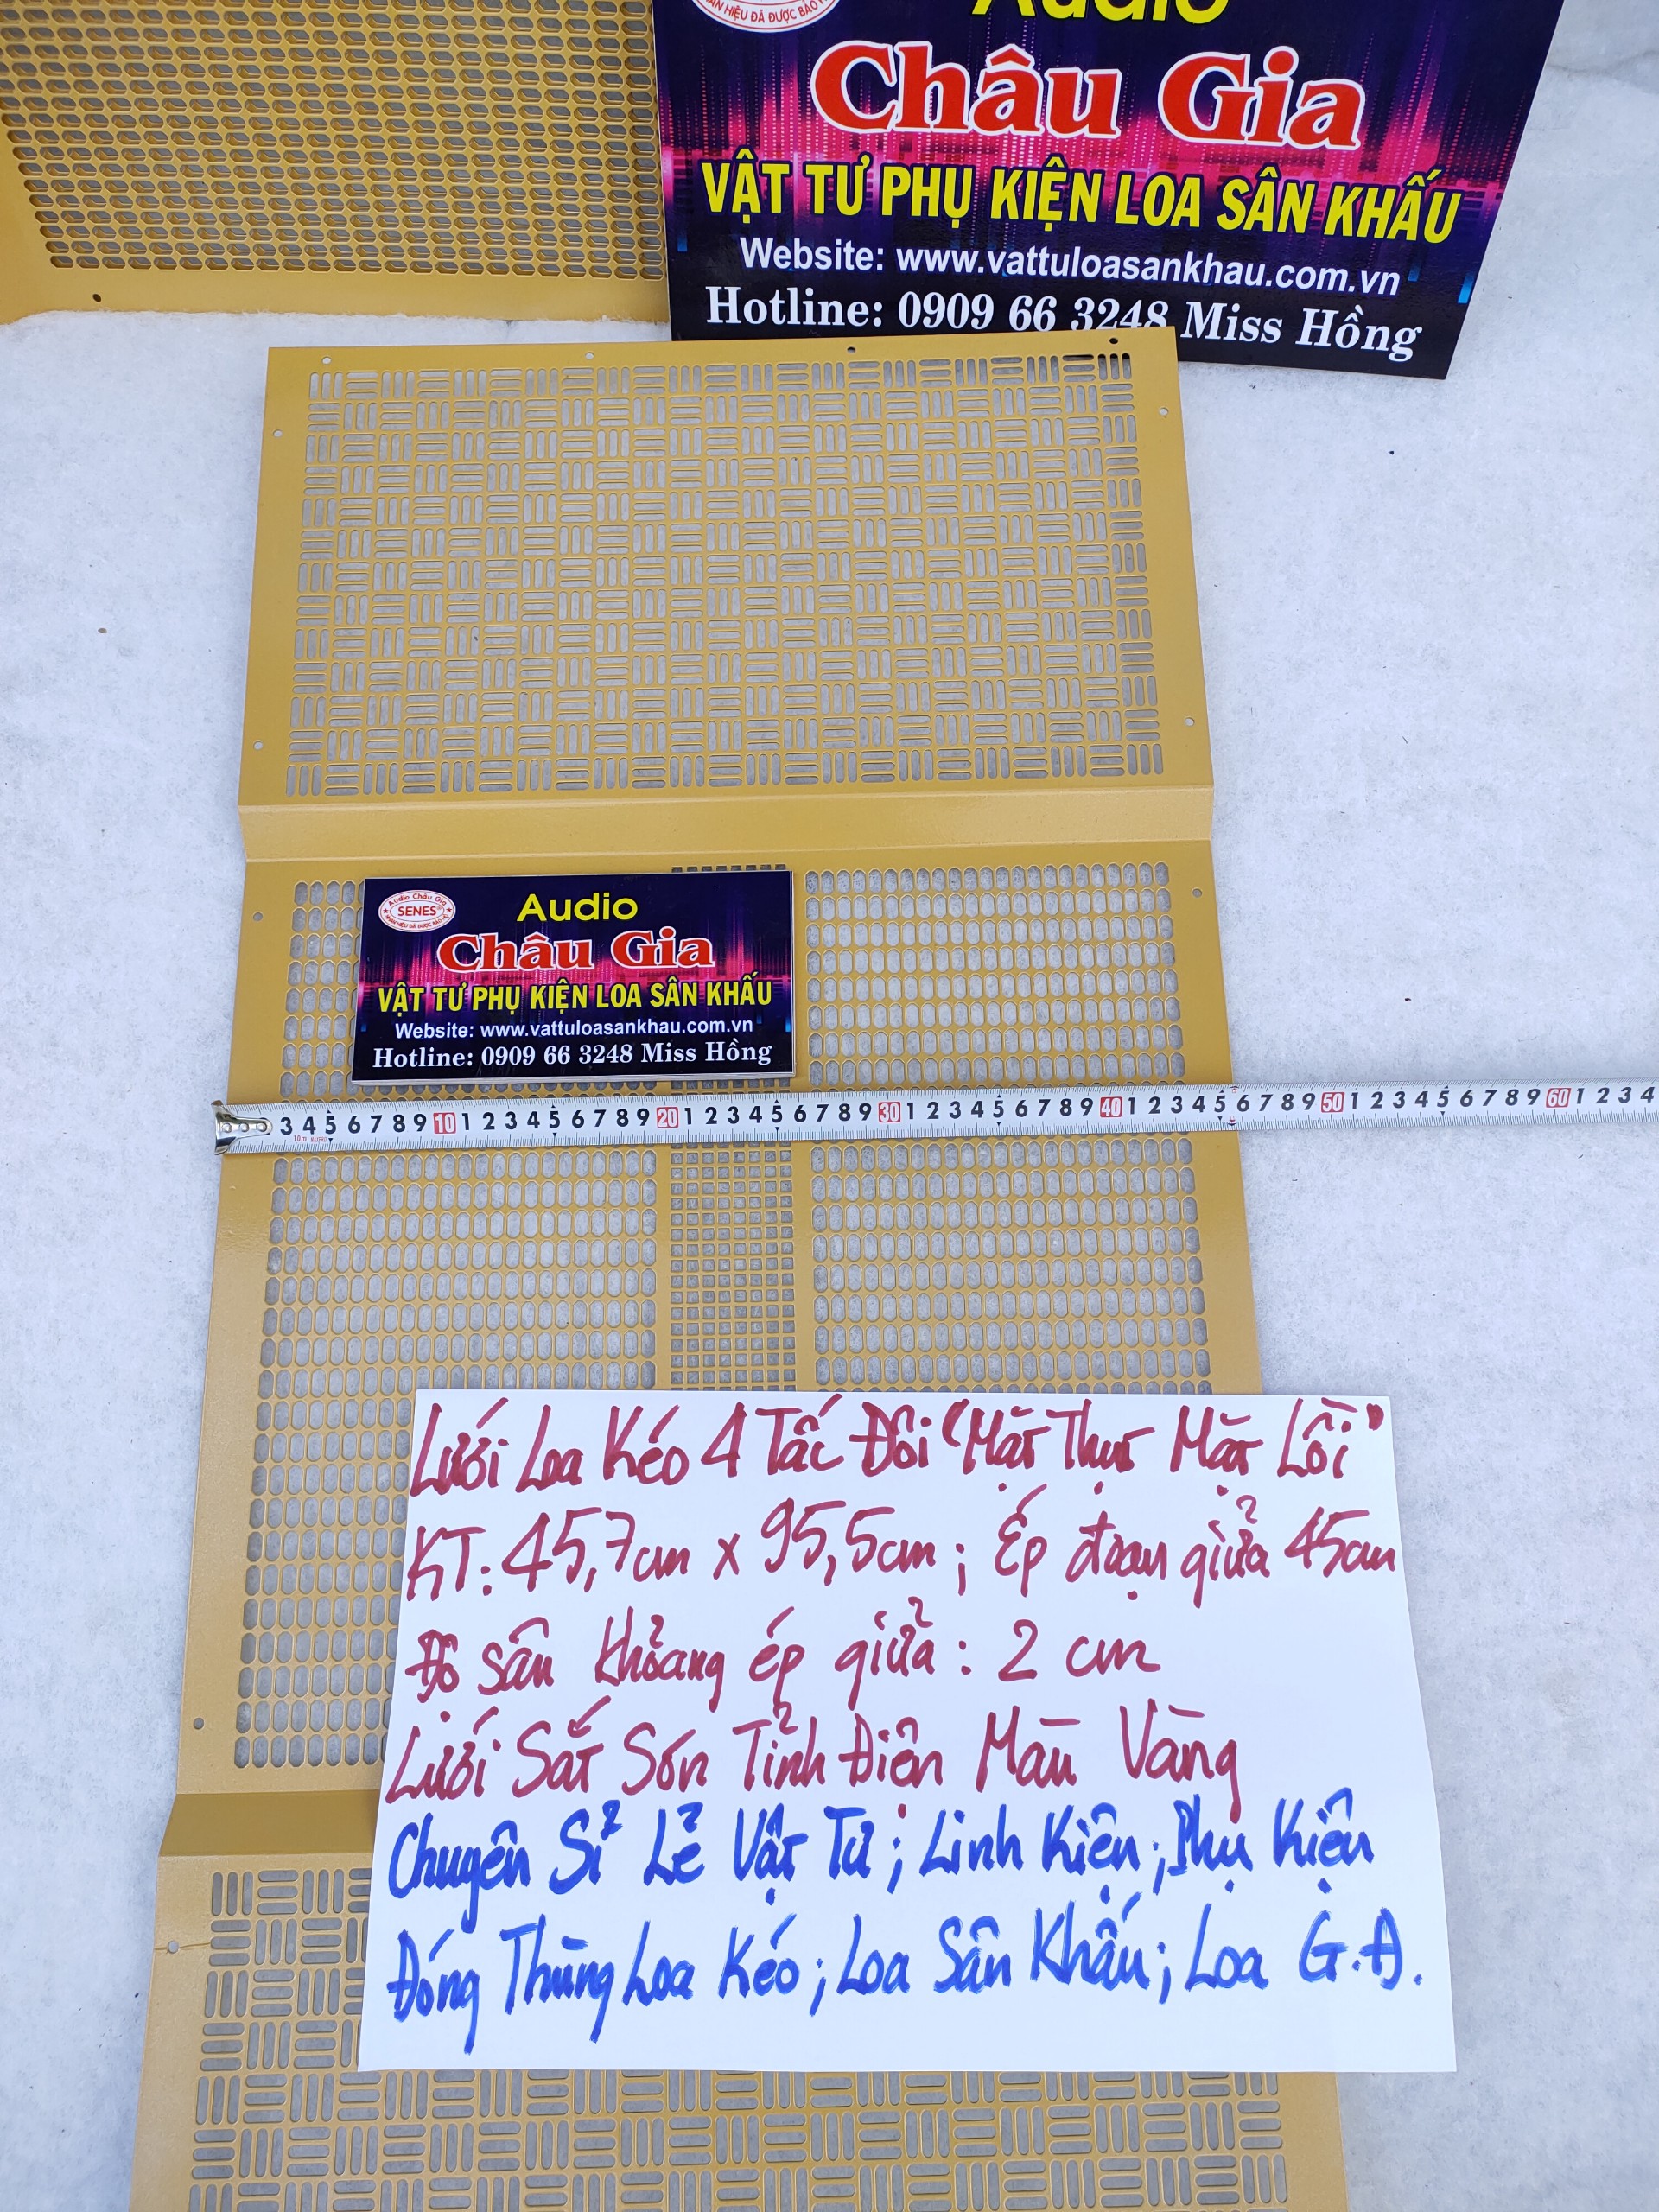 NHÃN HIỆU ĐÃ ĐƯỢC BẢO HỘ
Audio
Châu Gia
VẬT TƯ PHỤ KIỆN LOA SÂN KHẤU
Website: www.vattuloasankhau.com.vn
Hotline: 0909 66 3248 Miss Hồng
Audio Châu Gia
SENES
NHÃN HIỆU ĐÃ ĐƯỢC BẢO HỘ
Audio
Châu Gia
VẬT TƯ PHỤ KIỆN LOA SÂN KHẤU
Website: www.vattuloasankhau.com.vn
Hotline: 0909 66 3248 Miss Hồng
3 4 5 6 7 8 9 10 1 2 3 4 5 6 7 8 9 20 1 2 3 4 5 6 7 8 9 30 1 2 3 4 5 6 7 8 9 40 1 2 3 4 5 6 7 8 9 50 1 2 3 4 5 6 7 8 9 60 1 2 3 4
10m
Lưới Loa Kéo 4 Tấc Đôi "Mặt Thụt Mặt Lồi"
KT: 45,7cm x 95,5cm; Ép đoạn giữa 45cm
Độ sâu khoảng ép giữa: 2 cm
Lưới Sắt Sơn Tỉnh Điện Màu Vàng
Chuyên Sỉ Lẻ Vật Tư; Linh Kiện; Phụ Kiện
Đóng Thùng Loa Kéo; Loa Sân Khấu; Loa G.Đ.